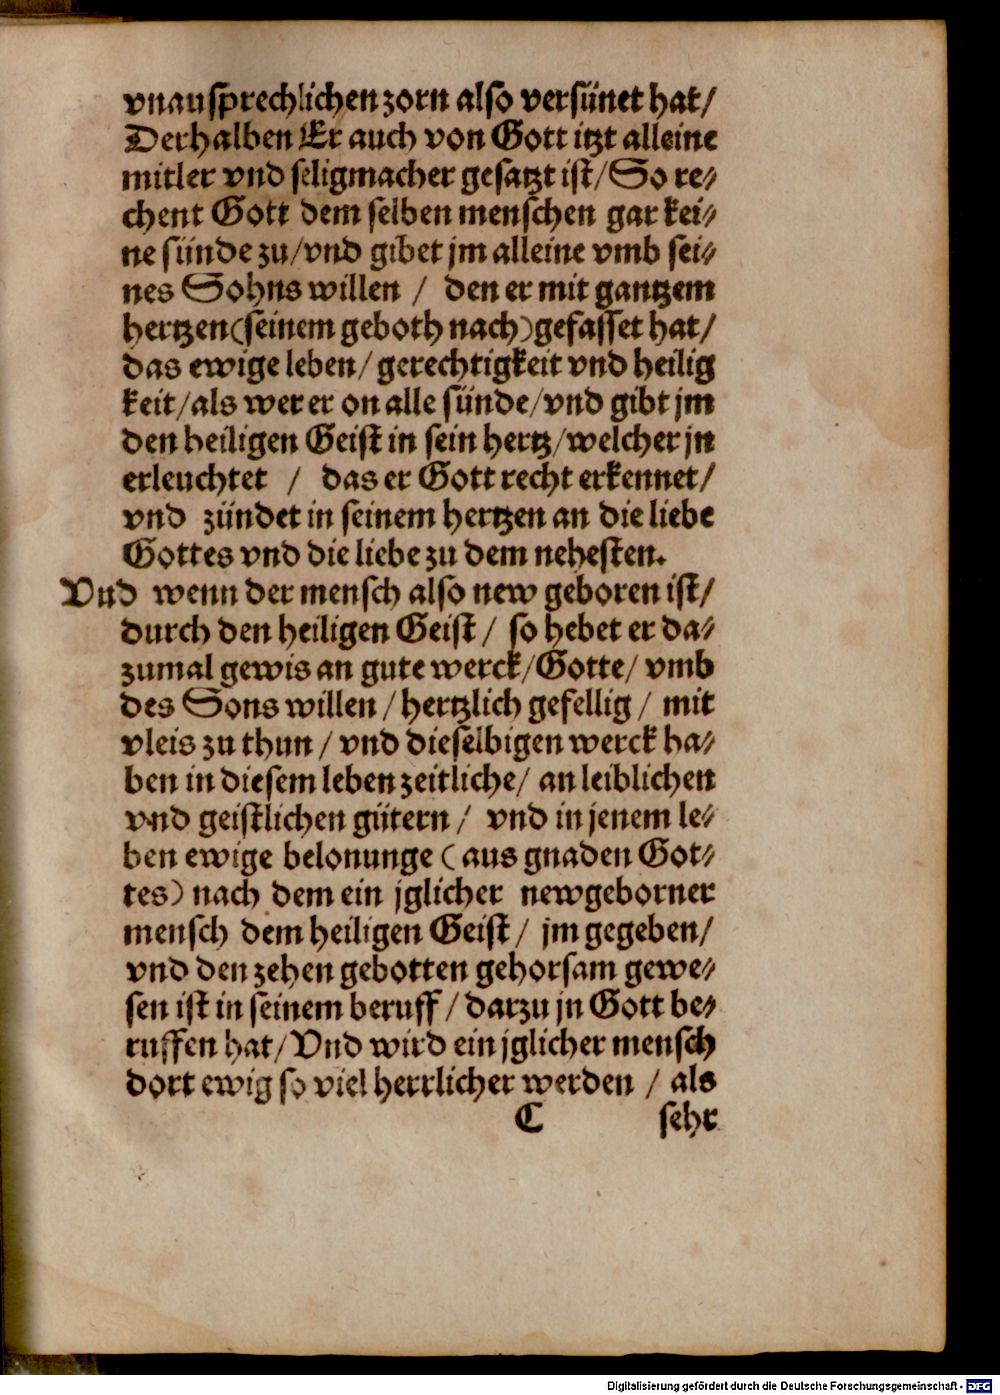 vnausprechlichen zorn also versünet hat/
Derhalben Er auch von Gott itzt alleine
mitler vnd seligmacher gesatzt ist/So re⸗
chent Gott dem selben menschen gar kei⸗
ne sünde zu/vnd gibet jm alleine vmb sei⸗
nes Sohns willen / den er mit gantzem
hertzen(seinem geboth nach)gefasset hat/
das ewige leben/gerechtigkeit vnd heilig
keit/als wer er on alle sünde/vnd gibt jm
den heiligen Geist in sein hertz/welcher jn
erleuchtet / das er Gott recht erkennet/
vnd zündet in seinem hertzen an die liebe
Gottes vnd die liebe zu dem nehesten.
Vnd wenn der mensch also new geboren ist/
durch den heiligen Geist/ so hebet er da⸗
zumal gewis an gute werck/Gotte/ vmb
des Sons willen/hertzlich gefellig/ mit
vleis zu thun/vnd dieselbigen werck ha⸗
ben in diesem leben zeitliche/ an leiblichen
vnd geistlichen gütern/ vnd in jenem le⸗
ben ewige belonunge (aus gnaden Got⸗
tes) nach dem ein jglicher newgeborner
mensch dem heiligen Geist/ jm gegeben/
vnd den zehen gebotten gehorsam gewe⸗
sen ist in seinem beruff/darzu jn Gott be⸗
ruffen hat/Vnd wird ein jglicher mensch
dort ewig so viel herrlicher werden / als
C sehr
Digitalisierung gefördert durch die Deutsche Forschungsgemeinschaft - DFG